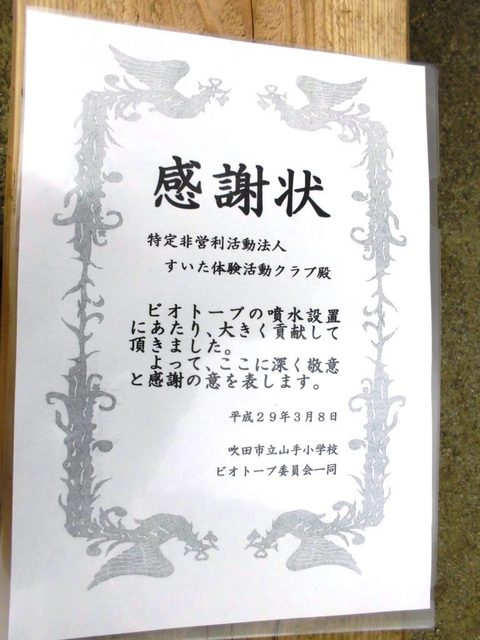 感謝状
特定非営利活動法人
すいた体験活動クラブ殿
ビオトープの噴水設置
にあたり、大きく貢献して
頂きました。
よって、ここに深く敬意
と感謝の意を表します。
平成29年3月8日
吹田市立山手小学校
ビオトープ委員会一同